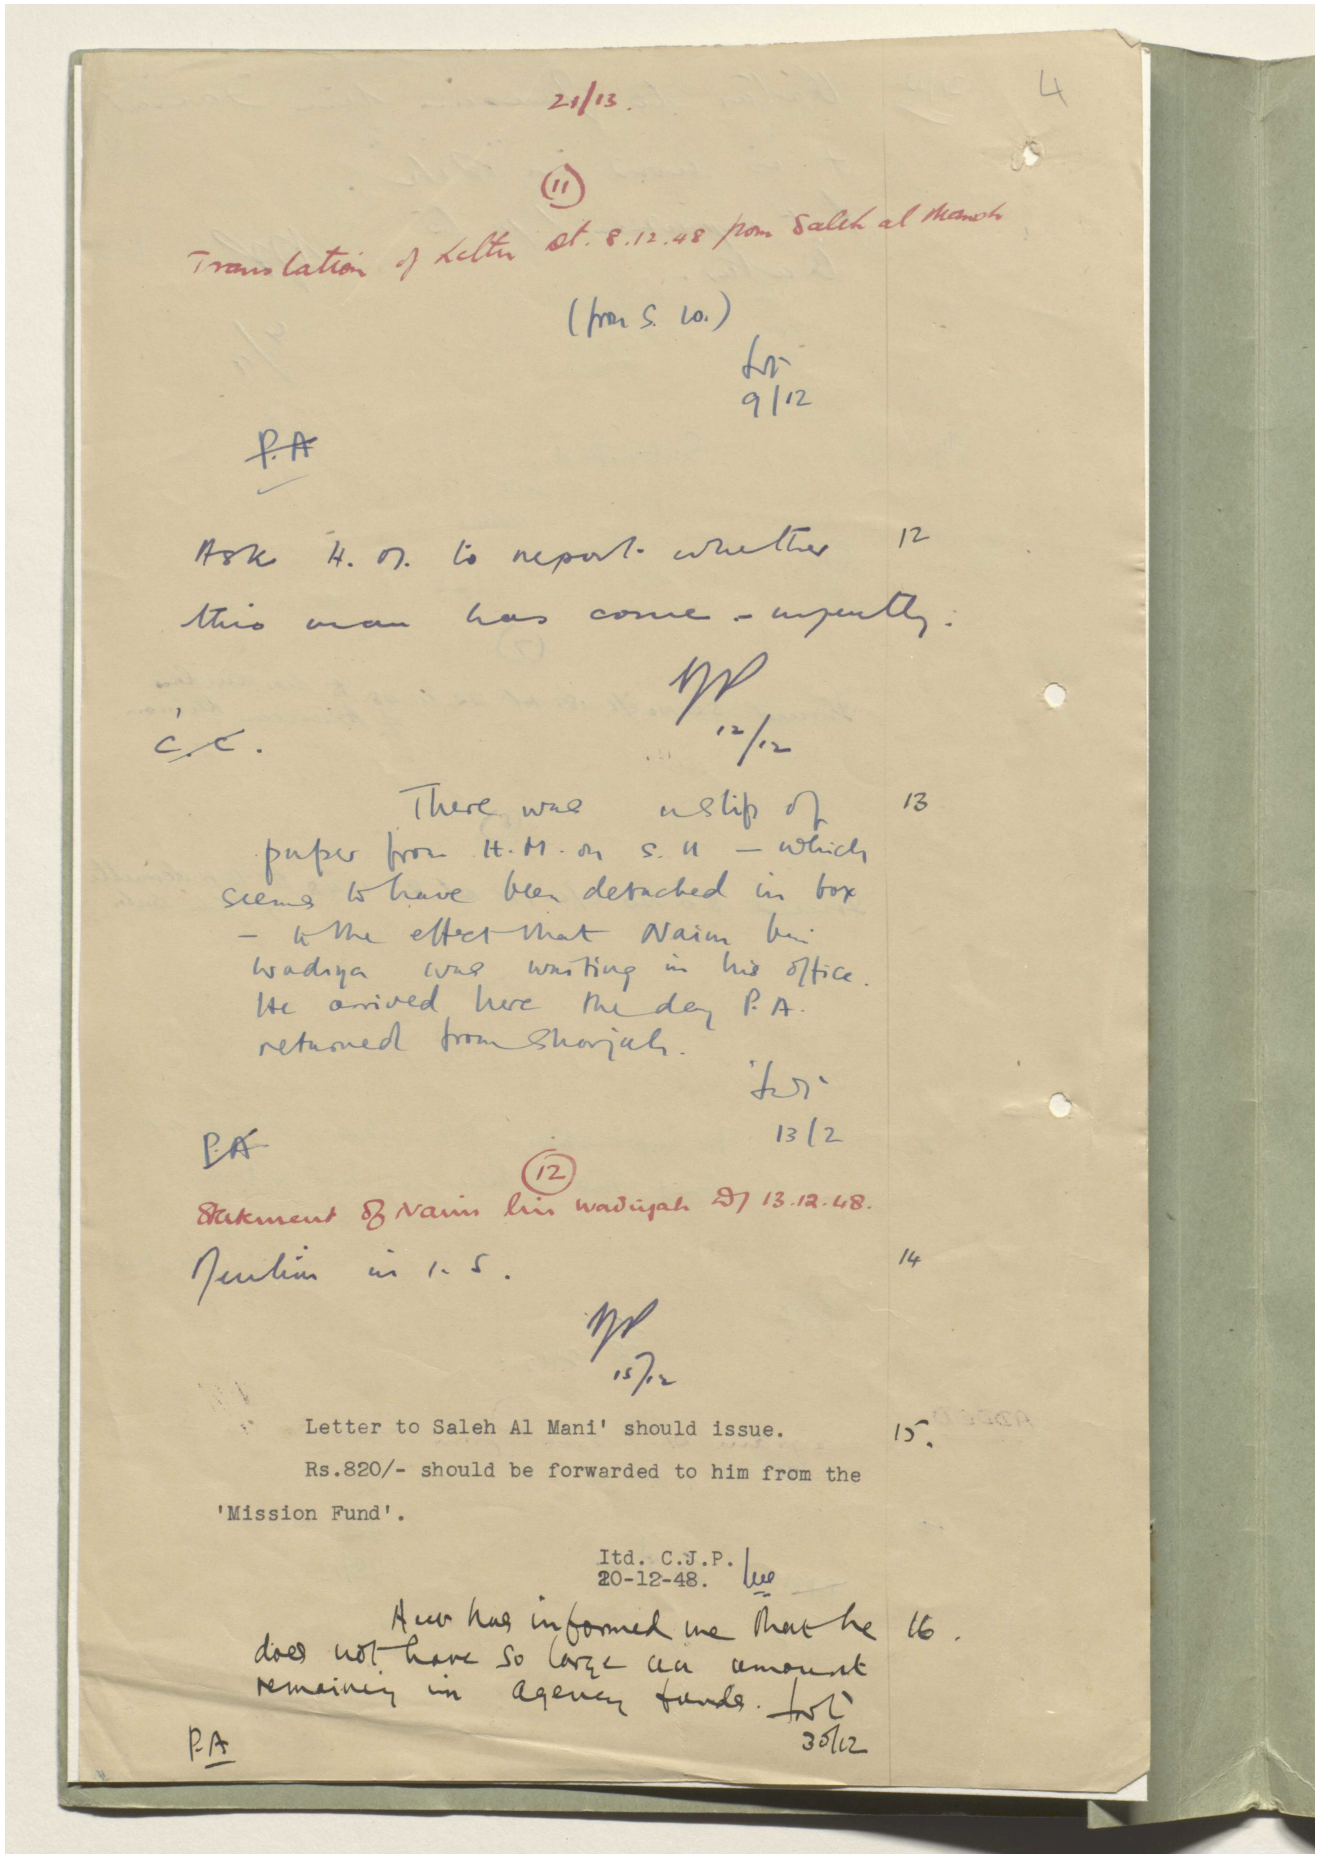 4
21/13.
11
Translation of Letter dt. 8.12.48 from Saleh al
(from S. W.)
9/12
P.A
Ask H. M. to report whether 12
this man has come - urgently.
12/12
C.C.
There was a slip of 13
paper from H.M. on S. 11 — which
seems to have been detached in box
— to the effect that Naim bin
Wadiya was waiting in his office.
He arrived here the day P.A.
returned from Sharjah.
13/2
P.A
12
Statement of Naim bin Wadiyah 13.12.48.
Mention in I. S. 14
15/12
Letter to Saleh Al Mani' should issue. 15.
Rs.820/- should be forwarded to him from the
'Mission Fund'.
Itd. C.J.P.
20-12-48.
has informed me that he 16.
does not have so large an amount
remaining in Agency funds.
30/12
P.A